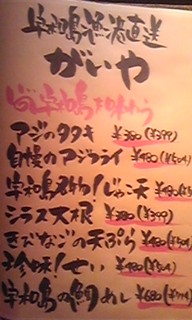 宇和島漁港直送
がいや
宇和島を味わう
アジのタタキ ¥380(¥399)
自慢のアジフライ ¥480(¥504)
宇和島名物!じゃこ天 ¥480
シラス大根 ¥380(¥399)
きびなごの天ぷら ¥480(¥504)
珍味!せい ¥480(¥504)
宇和島の鯛めし ¥680